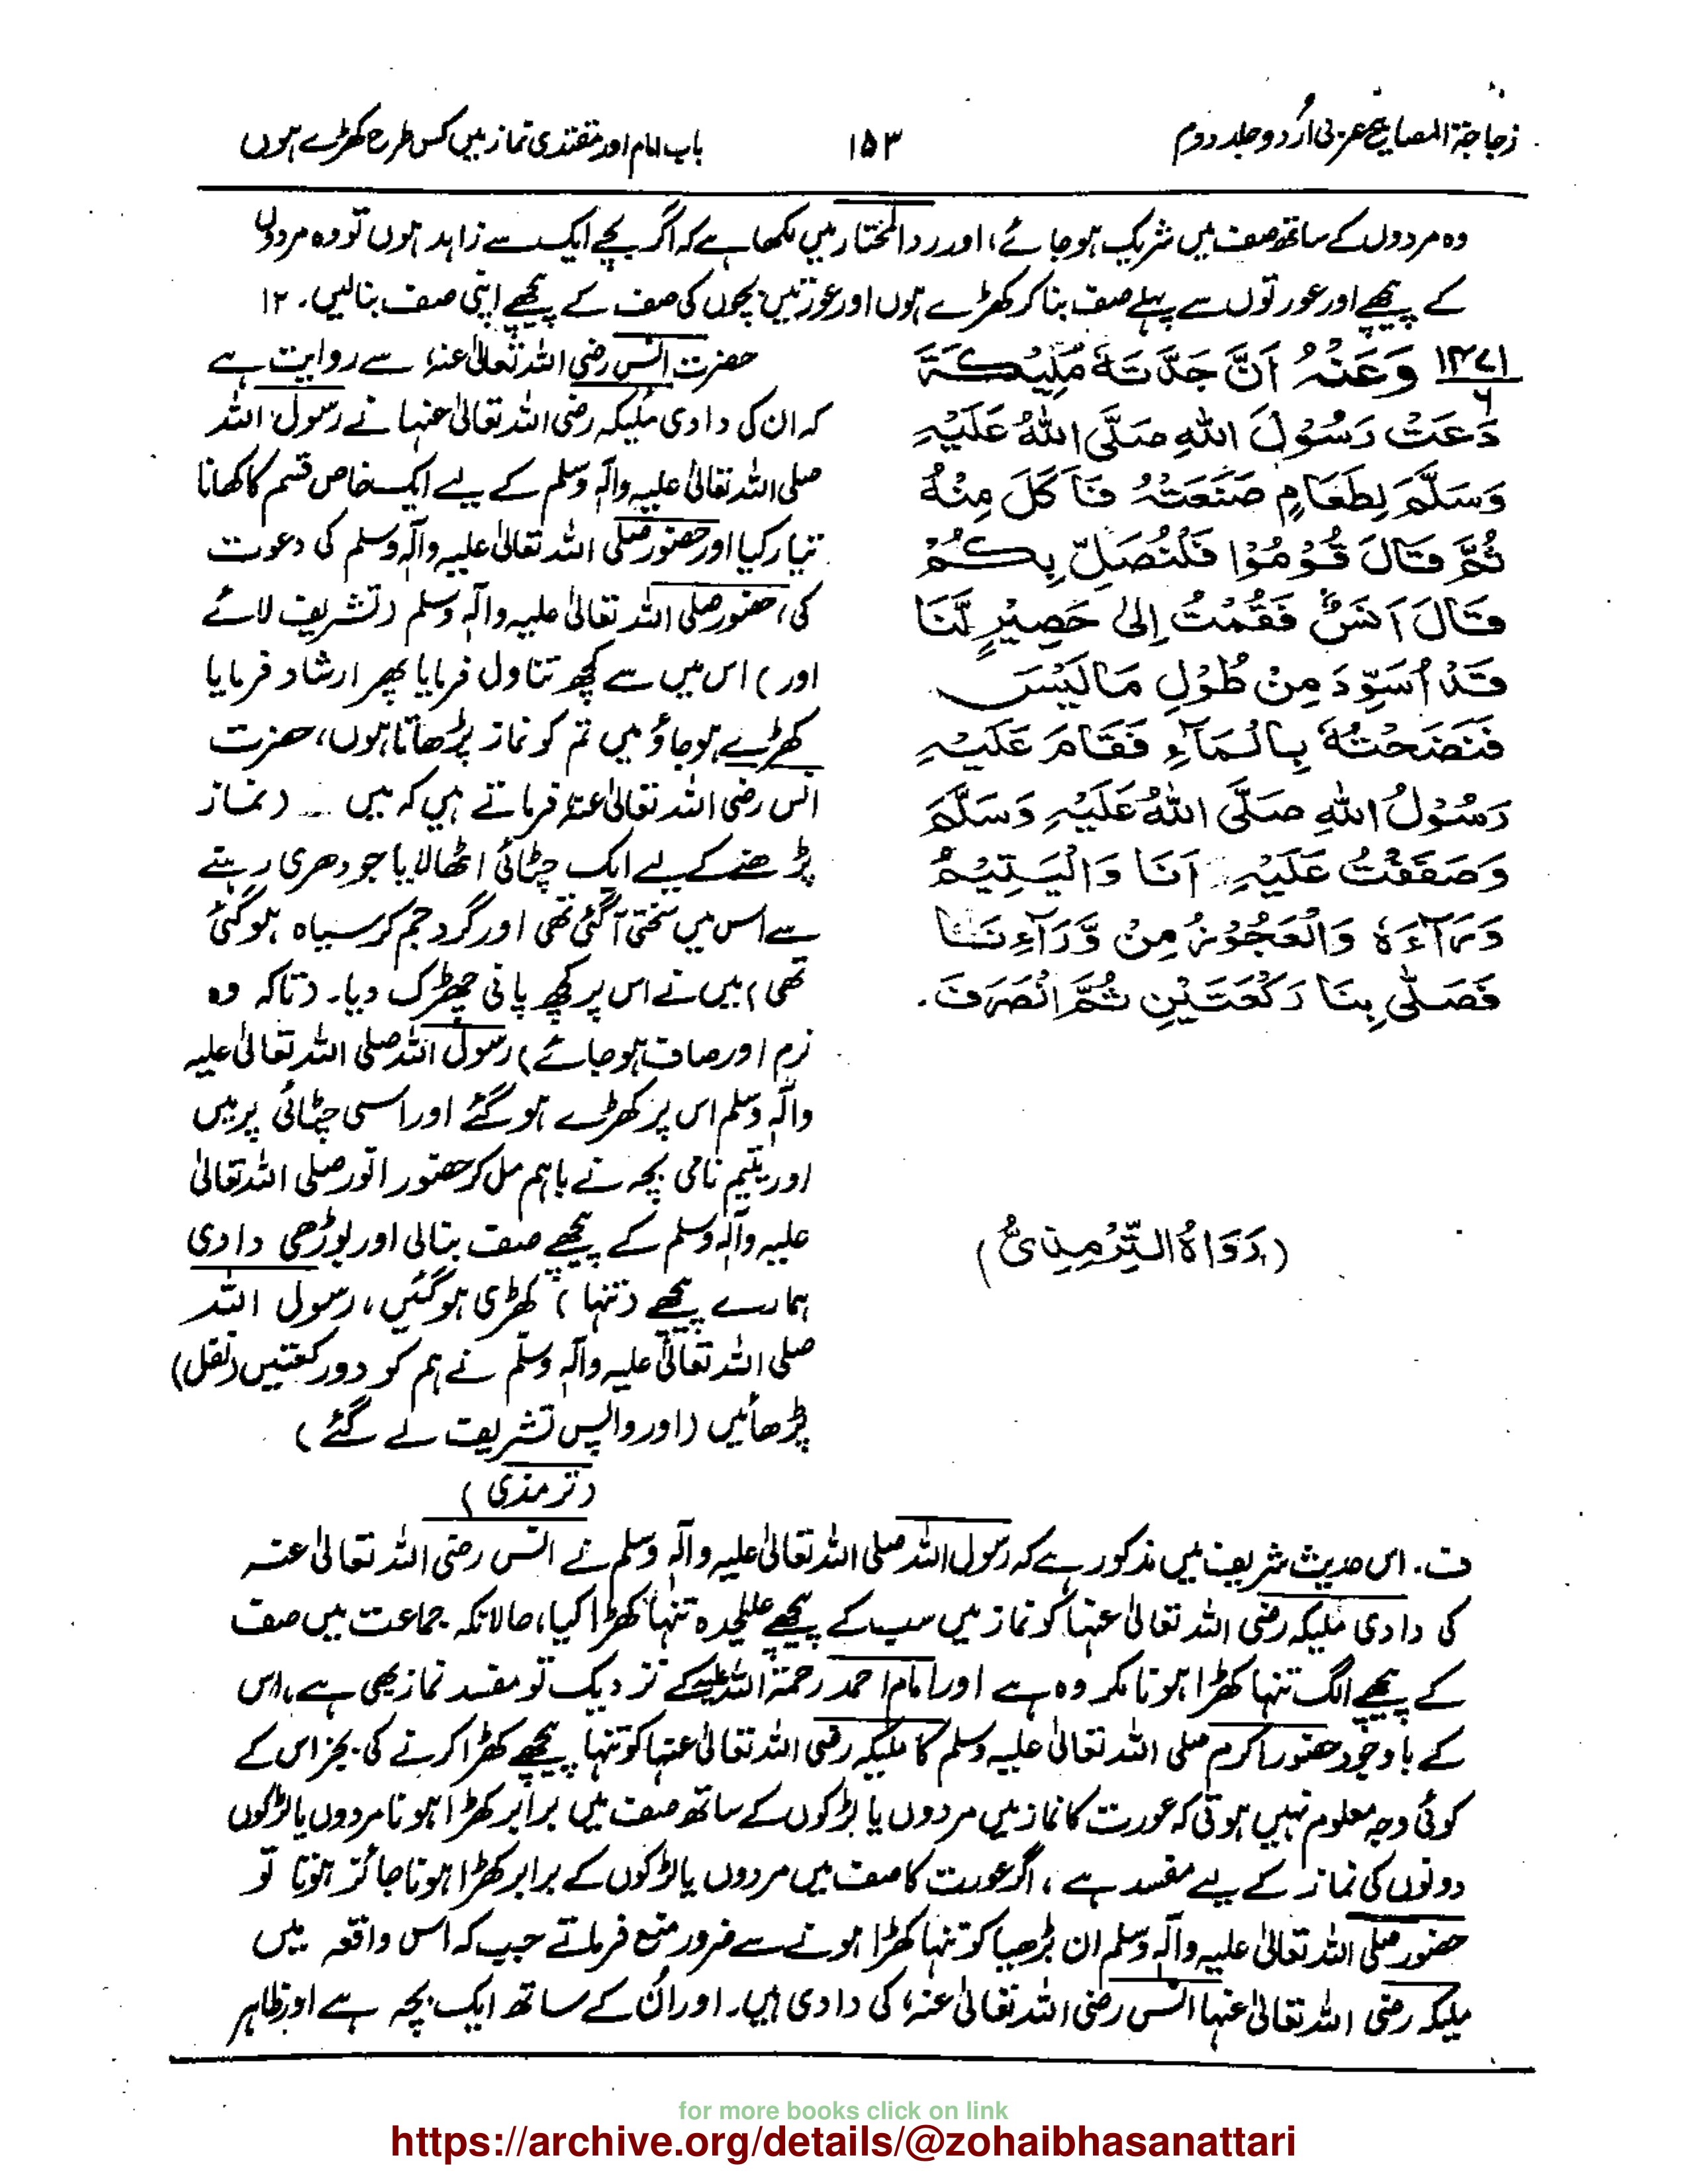 زجاجۃ المصابیح عربی اُردو جلد دوم
۱۵۳
باب امام اور مقتدی نماز میں کس طرح کھڑے ہوں
وہ مردوں کے ساتھ صف میں شریک ہو جائے، اور ردالمختار میں لکھا ہے کہ اگر بچے ایک سے زاہد ہوں تو وہ مردوں
کے پیچھے اور عورتوں سے پہلے صف بنا کر کھڑے ہوں اور عورتیں بچوں کی صف کے پیچھے اپنی صف بنالیں۔ ۱۲
۱۴۷۱ وَعَنْہُ اَنَّ جَدَّتَہٗ مُلَیْکَۃَ
۶
دَعَتْ رَسُوْلَ اللہِ صَلَّی اللہُ عَلَیْہِ
وَسَلَّمَ لِطَعَامٍ صَنَعَتْہُ فَاَکَلَ مِنْہُ
ثُمَّ قَالَ قُوْمُوْا فَلْنُصَلِّ بِکُمْ
قَالَ اَنَسٌ فَقُمْتُ اِلٰی حَصِیْرٍ لَّنَا
قَدْ اُسَوِّدَ مِنْ طُوْلِ مَا لَیْسَ
فَنَضَحْتُہٗ بِالْمَآءِ فَقَامَ عَلَیْہِ
رَسُوْلُ اللہِ صَلَّی اللہُ عَلَیْہِ وَسَلَّمَ
وَصَفَفْتُ عَلَیْہِ اَنَا وَالْیَتِیْمُ
وَرَآءَہٗ وَالْعَجُوْزُ مِنْ وَّرَآءِنَا
فَصَلّٰی بِنَا رَکْعَتَیْنِ ثُمَّ انْصَرَفَ۔
(رَوَاہُ التِّرْمِذِیُّ)
حضرت انس رضی اللہ تعالیٰ عنہٗ سے روایت ہے
کہ ان کی دادی مُلیکہ رضی اللہ تعالیٰ عنہا نے رسول اللہ
صلی اللہ تعالیٰ علیہ واٰلہٖ وسلم کے لیے ایک خاص قسم کا کھانا
تیار کیا اور حضور صلی اللہ تعالیٰ علیہ واٰلہٖ وسلم کی دعوت
کی، حضور صلی اللہ تعالیٰ علیہ واٰلہٖ وسلم (تشریف لائے
اور) اس میں سے کچھ تناول فرمایا پھر ارشاد فرمایا
کھڑے ہو جاؤ میں تم کو نماز پڑھاتا ہوں، حضرت
انس رضی اللہ تعالیٰ عنہٗ فرماتے ہیں کہ میں (نماز
پڑھنے کے لیے ایک چٹائی اٹھا لایا جو دھری رہنے
سے اس میں سختی آگئی تھی اور گرد جم کر سیاہ ہو گئی
تھی) میں نے اس پر کچھ پانی چھڑک دیا۔ (تاکہ وہ
نرم اور صاف ہو جائے) رسول اللہ صلی اللہ تعالیٰ علیہ
واٰلہٖ وسلم اس پر کھڑے ہو گئے اور اسی چٹائی پر میں
اور یتیم نامی بچہ نے باہم مل کر حضور انور صلی اللہ تعالیٰ
علیہ واٰلہٖ وسلم کے پیچھے صف بنالی اور بوڑھی دادی
ہمارے پیچھے (تنہا) کھڑی ہو گئیں، رسول اللہ
صلی اللہ تعالیٰ علیہ واٰلہٖ وسلم نے ہم کو دو رکعتیں (نفل)
پڑھائیں (اور واپس تشریف لے گئے)
(ترمذی)
ف۔ اس حدیث شریف میں مذکور ہے کہ رسول اللہ صلی اللہ تعالیٰ علیہ واٰلہٖ وسلم نے انس رضی اللہ تعالیٰ عنہ
کی دادی مُلیکہ رضی اللہ تعالیٰ عنہا کو نماز میں سب کے پیچھے علیحدہ تنہا کھڑا کیا، حالانکہ جماعت میں صف
کے پیچھے الگ تنہا کھڑا ہونا مکروہ ہے اور امام احمد رحمۃ اللہ علیہ کے نزدیک تو مفسد نماز بھی ہے، اس
کے باوجود حضور اکرم صلی اللہ تعالیٰ علیہ وسلم کا ملیکہ رضی اللہ تعالیٰ عنہا کو تنہا پیچھے کھڑا کرنے کی بجز اس کے
کوئی وجہ معلوم نہیں ہوتی کہ عورت کا نماز میں مردوں یا لڑکوں کے ساتھ صف میں برابر کھڑا ہونا مردوں یا لڑکوں
دونوں کی نماز کے لیے مفسد ہے، اگر عورت کا صف میں مردوں یا لڑکوں کے برابر کھڑا ہونا جائز ہوتا تو
حضور صلی اللہ تعالیٰ علیہ واٰلہٖ وسلم ان بڑھیا کو تنہا کھڑا ہونے سے ضرور منع فرماتے جب کہ اس واقعہ میں
ملیکہ رضی اللہ تعالیٰ عنہا انس رضی اللہ تعالیٰ عنہٗ کی دادی ہیں۔ اور اُن کے ساتھ ایک بچہ ہے اور ظاہر
for more books click on link
https://archive.org/details/@zohaibhasanattari